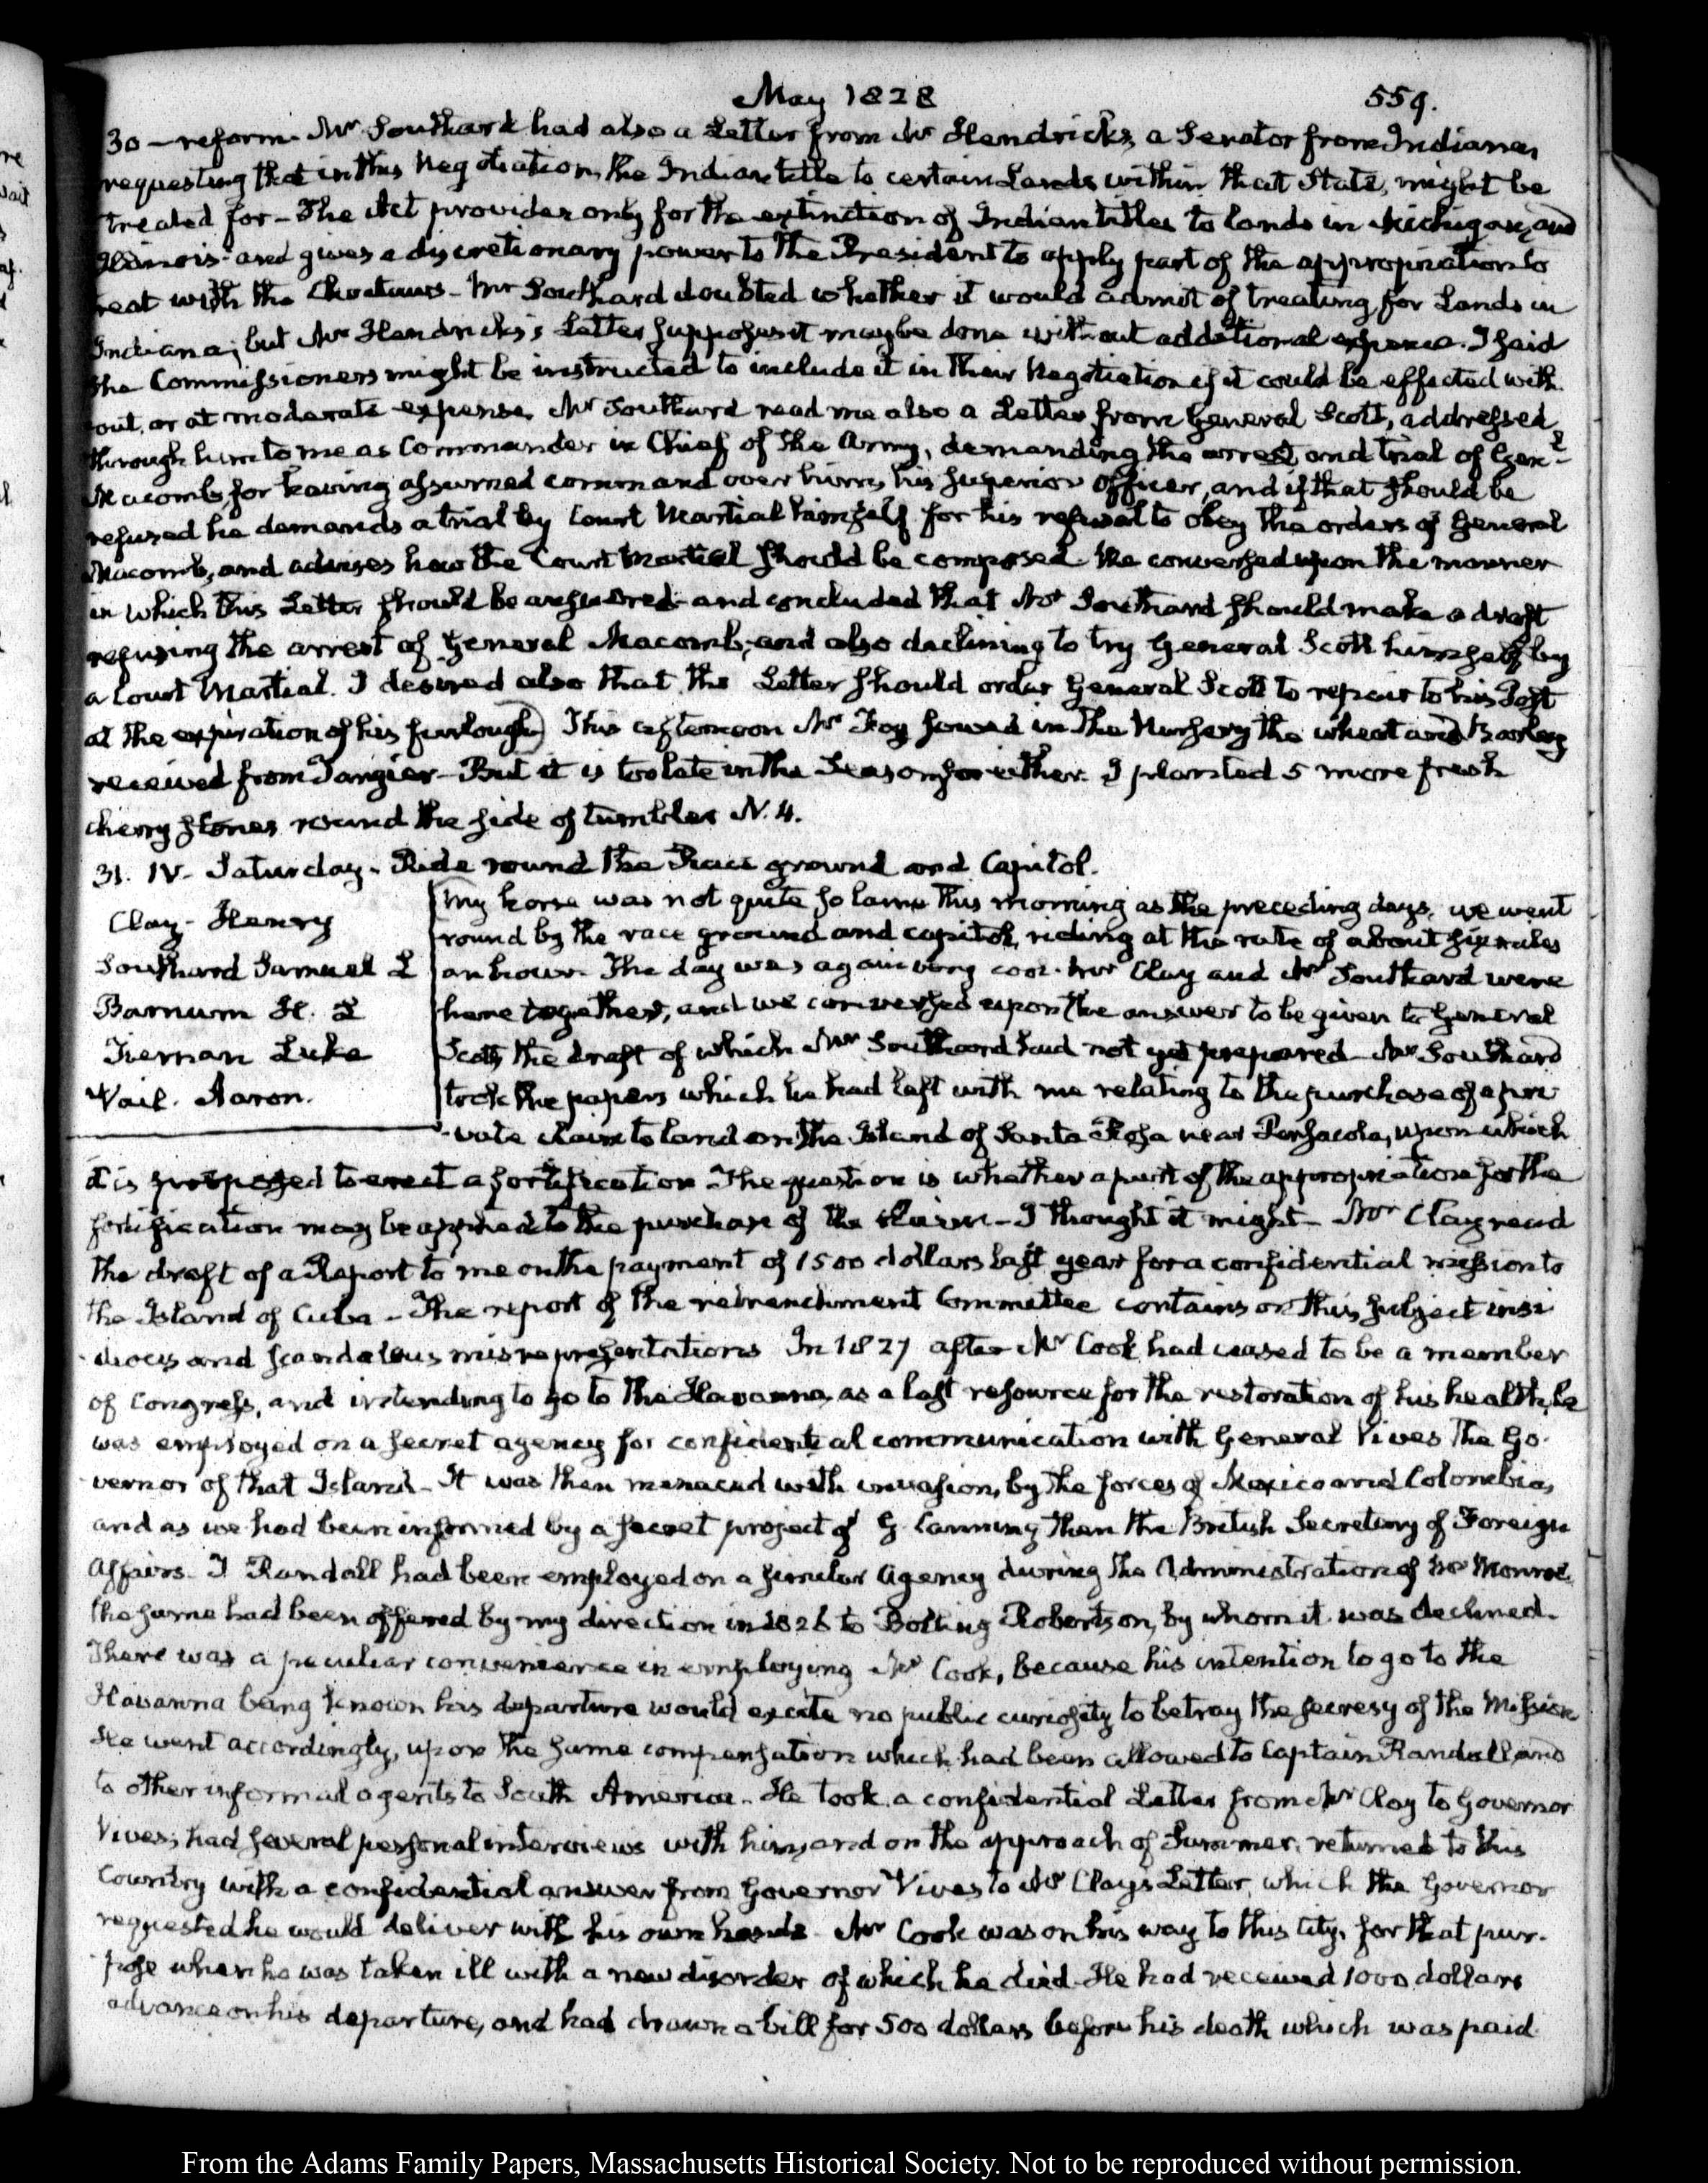 May 1828
559.
30 — reform. Mr Southard had also a Letter from Mr Hendricks, a Senator from Indiana,
requesting that in this Negotiation, the Indian title to certain Lands within that State, might be
treated for — The Act provides only for the extinction of Indian titles to lands in Michigan, and
Illinois: and gives a discretionary power to the President to apply part of the appropriation to
treat with the Choctaws — Mr Southard doubted whether it would admit of treating for Lands in
Indiana; but Mr Hendricks's Letter supposes it may be done without additional expence. I said
the Commissioners might be instructed to include it in their Negotiation if it could be effected with
out, or at moderate expense. Mr Southard read me also a Letter from General Scott, addressed
through him to me as Commander in Chief of the Army, demanding the arrest and trial of Genl
Macomb, for having assumed command over him, his superior officer, and if that should be
refused he demands a trial by Court Martial himself for his refusal to obey the orders of General
Macomb, and advises how the Court Martial should be composed. We conversed upon the manner
in which this Letter should be answered — and concluded that Mr Southard should make a draft
refusing the arrest of General Macomb, and also declining to try General Scott himself by
a Court Martial. I desired also that the Letter should order General Scott to repair to his Post
at the expiration of his furlough) This afternoon Mr Foy sowed in the Nursery the wheat and Barley
received from Tangier — But it is too late in the Season for either. I planted 5 more fresh
cherry stones round the side of tumbler N. 4.
31. IV. Saturday. Ride round the Race ground and Capitol.
Clay - Henry
Southard Samuel L
Barnum H. L
Tiernan Luke
Vail. Aaron.
My horse was not quite so lame this morning as the preceding days, we went
round by the race ground and capitol, riding at the rate of about six miles
an hour. The day was again very cool. Mr Clay and Mr Southard were
here together, and we conversed upon the answer to be given to General
Scott, the draft of which Mr Southard had not yet prepared — Mr Southard
took the papers which he had left with me relating to the purchase of a pri
-vate claim to land on the Island of Santa Rosa near Pensacola, upon which
it is proposed to erect a fortification. The question is whether a part of the appropriation for the
fortification may be applied to the purchase of the claim — I thought it might — Mr Clay read
the draft of a Report to me on the payment of 1500 dollars last year for a confidential mission to
the Island of Cuba — The report of the retrenchment Committee contains on this subject insi
-dious and scandalous misrepresentations In 1827 after Mr Cook had ceased to be a member
of Congress, and intending to go to the Havanna, as a last resource for the restoration of his health, he
was employed on a secret agency for confidential communication with General Vives the Go-
vernor of that Island — It was then menaced with invasion, by the forces of Mexico and Colombia,
and as we had been informed by a secret project of G. Canning then the British Secretary of Foreign
Affairs. T Randall had been employed on a similar agency during the Administration of Mr Monroe.
the same had been offered by my direction in 1826 to Bolling Robertson, by whom it was declined.
There was a peculiar convenience in employing Mr Cook, because his intention to go to the
Havanna being known his departure would excite no public curiosity to betray the secresy of the Mission
He went accordingly, upon the same compensation which had been allowed to Captain Randall, and
to other informal agents to South America. He took a confidential Letter from Mr Clay to Governor
Vives; had several personal interviews with him, and on the approach of Summer, returned to this
Country with a confidential answer from Governor Vives to Mr Clay's Letter, which the Governor
requested he would deliver with his own hands. Mr Cook was on his way to this City, for that pur-
pose when he was taken ill with a new disorder of which he died. He had received 1000 dollars
advance on his departure, and had drawn a bill for 500 dollars before his death which was paid.
From the Adams Family Papers, Massachusetts Historical Society. Not to be reproduced without permission.